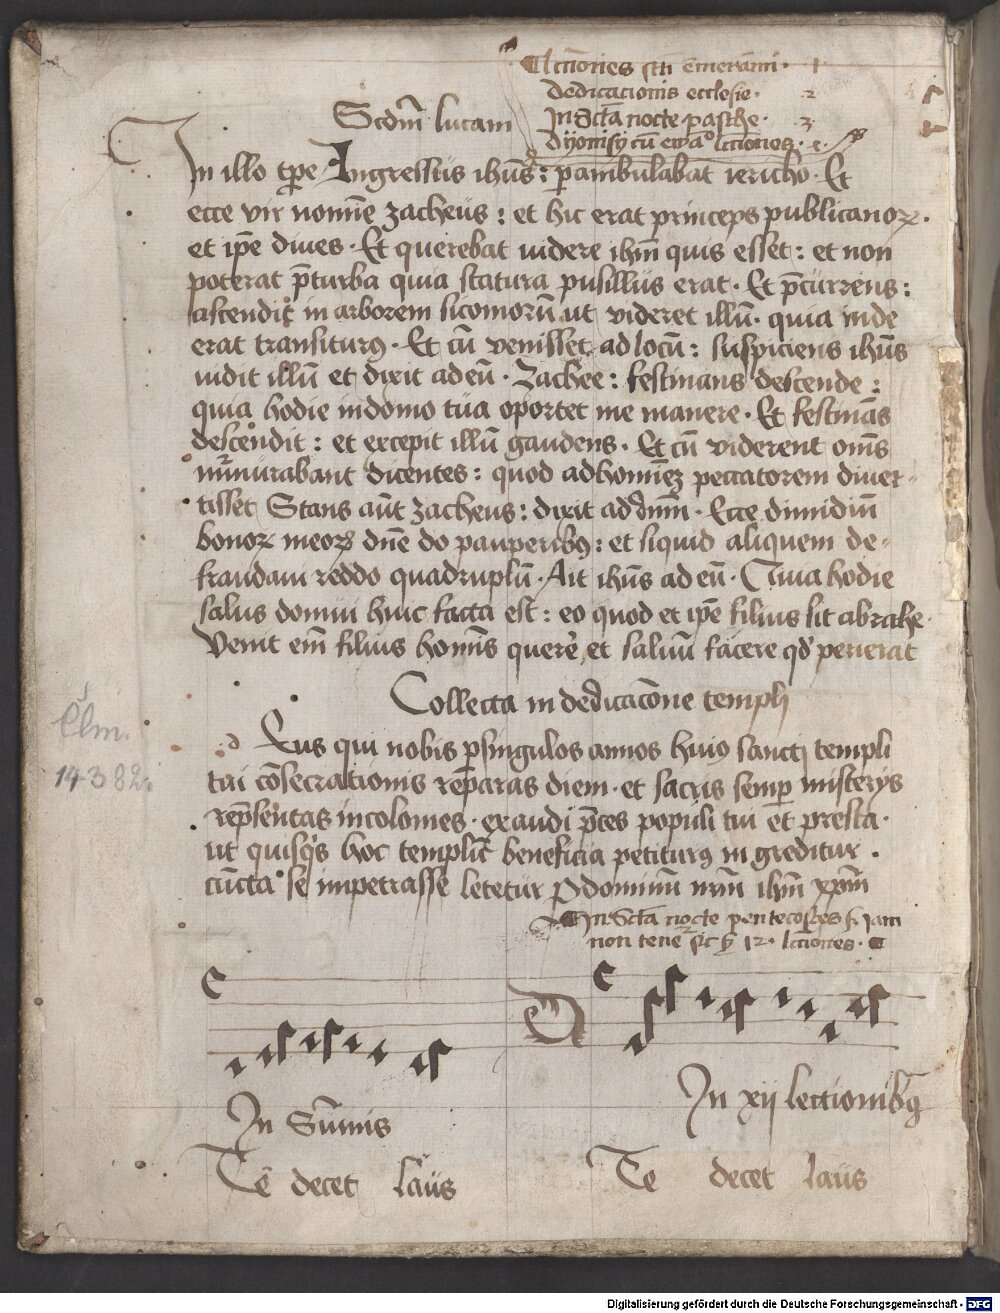 Lcc̃iones sc̃ti em̃eram̃i · 1
dedicacionis ecclesie · 2
In sc̃ta nocte pasche · 3
Dyonisy cũ ewã° lcc̃iones ·
Scd̃m lucam
In illo tp̃e Ingressus ihũs : p̱ambulabat iericho · Et
ecce vir nomĩe zacheus : et hic erat princeps publicanoꝝ ·
et ip̃e diues · Et querebat uidere ihm̃ quis esset : et non
poterat p̃turba quia statura pusillus erat · Et p̃currens :
ascendit in arborem sicomorũ ut videret illũ · quia inde
erat transiturꝯ · Et cũ venisset ad locũ : suspiciens ihũs
uidit illũ et dixit ad eũ · Zachee : festinans descende :
quia hodie in domo tua oportet me manere · Et festinãs
descendit : et excepit illũ gaudens · Et cũ viderent om̃s
murmurabant dicentes : quod ad homiñeꝫ peccatorem diuer-
tisset Stans aũt zacheus : dixit ad dñm · Ecce dimidiũ
bonoꝝ meoꝝ dñe do pauperibꝯ : et siquid aliquem de-
fraudaui reddo quadruplũ · Ait ihũs ad eũ · Quia hodie
salus domui huic facta est : eo quod et ip̃e filius sit abrahe ·
Venit em̃ filius homĩs querẽ et saluũ facere qd̾ perierat
Collecta in dedicac̃one templi
d Eus qui nobis p̱ singulos annos huiꝯ sancti templi
tui cõsecrationis rep̃aras diem · et sacris semp̱ misterys
rep̃sentas incolomes · exaudi p̃ces populi tui et presta ·
ut quisq̾s hoc templũ beneficia petiturꝯ in greditur ·
cũcta se impetrasse letetur P̱ dominũ nr̃m ihm̃ xp̃m
In sc̃ta nocte pentecostes iam
non tene 12 · lcc̃iones ·
In Sũmis
In xij lectionibꝯ
Tẽ decet laus
Te decet laus
Clm.
14382.
Digitalisierung gefördert durch die Deutsche Forschungsgemeinschaft - DFG